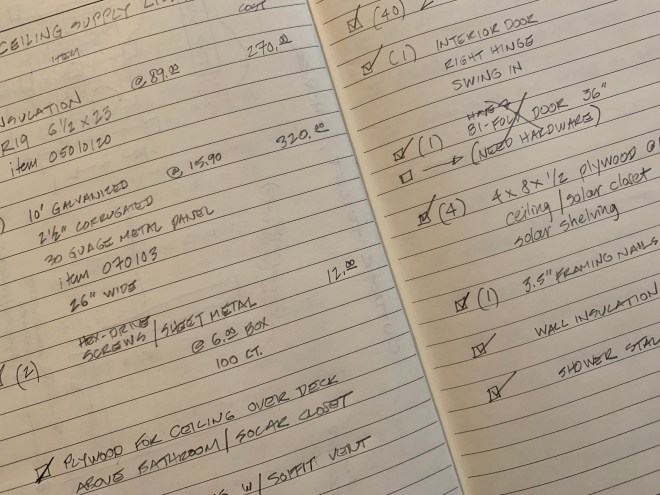 CEILING SUPPLY
ITEM COST
INSULATION @ 89.00 270.00
R19 6 1/2 x 23
item 05010120
10' GALVANIZED @ 15.90 320.00
2 1/2" CORRUGATED
30 GUAGE METAL PANEL
item 070103
26" WIDE
(2) HEX-DRIVE 12.00
SCREWS / SHEET METAL
@ 6.00 BOX
100 CT.
PLYWOOD FOR CEILING OVER DECK
ABOVE BATHROOM / SOLAR CLOSET
W/ SOFFIT VENT
(40)
(1) INTERIOR DOOR
RIGHT HINGE
SWING IN
(1) BI-FOLD DOOR 36"
→ (NEED HARDWARE)
(4) 4 x 8 x 1/2 PLYWOOD @
ceiling / solar closet
solar shelving
(1) 3.5" FRAMING NAILS
WALL INSULATION
SHOWER